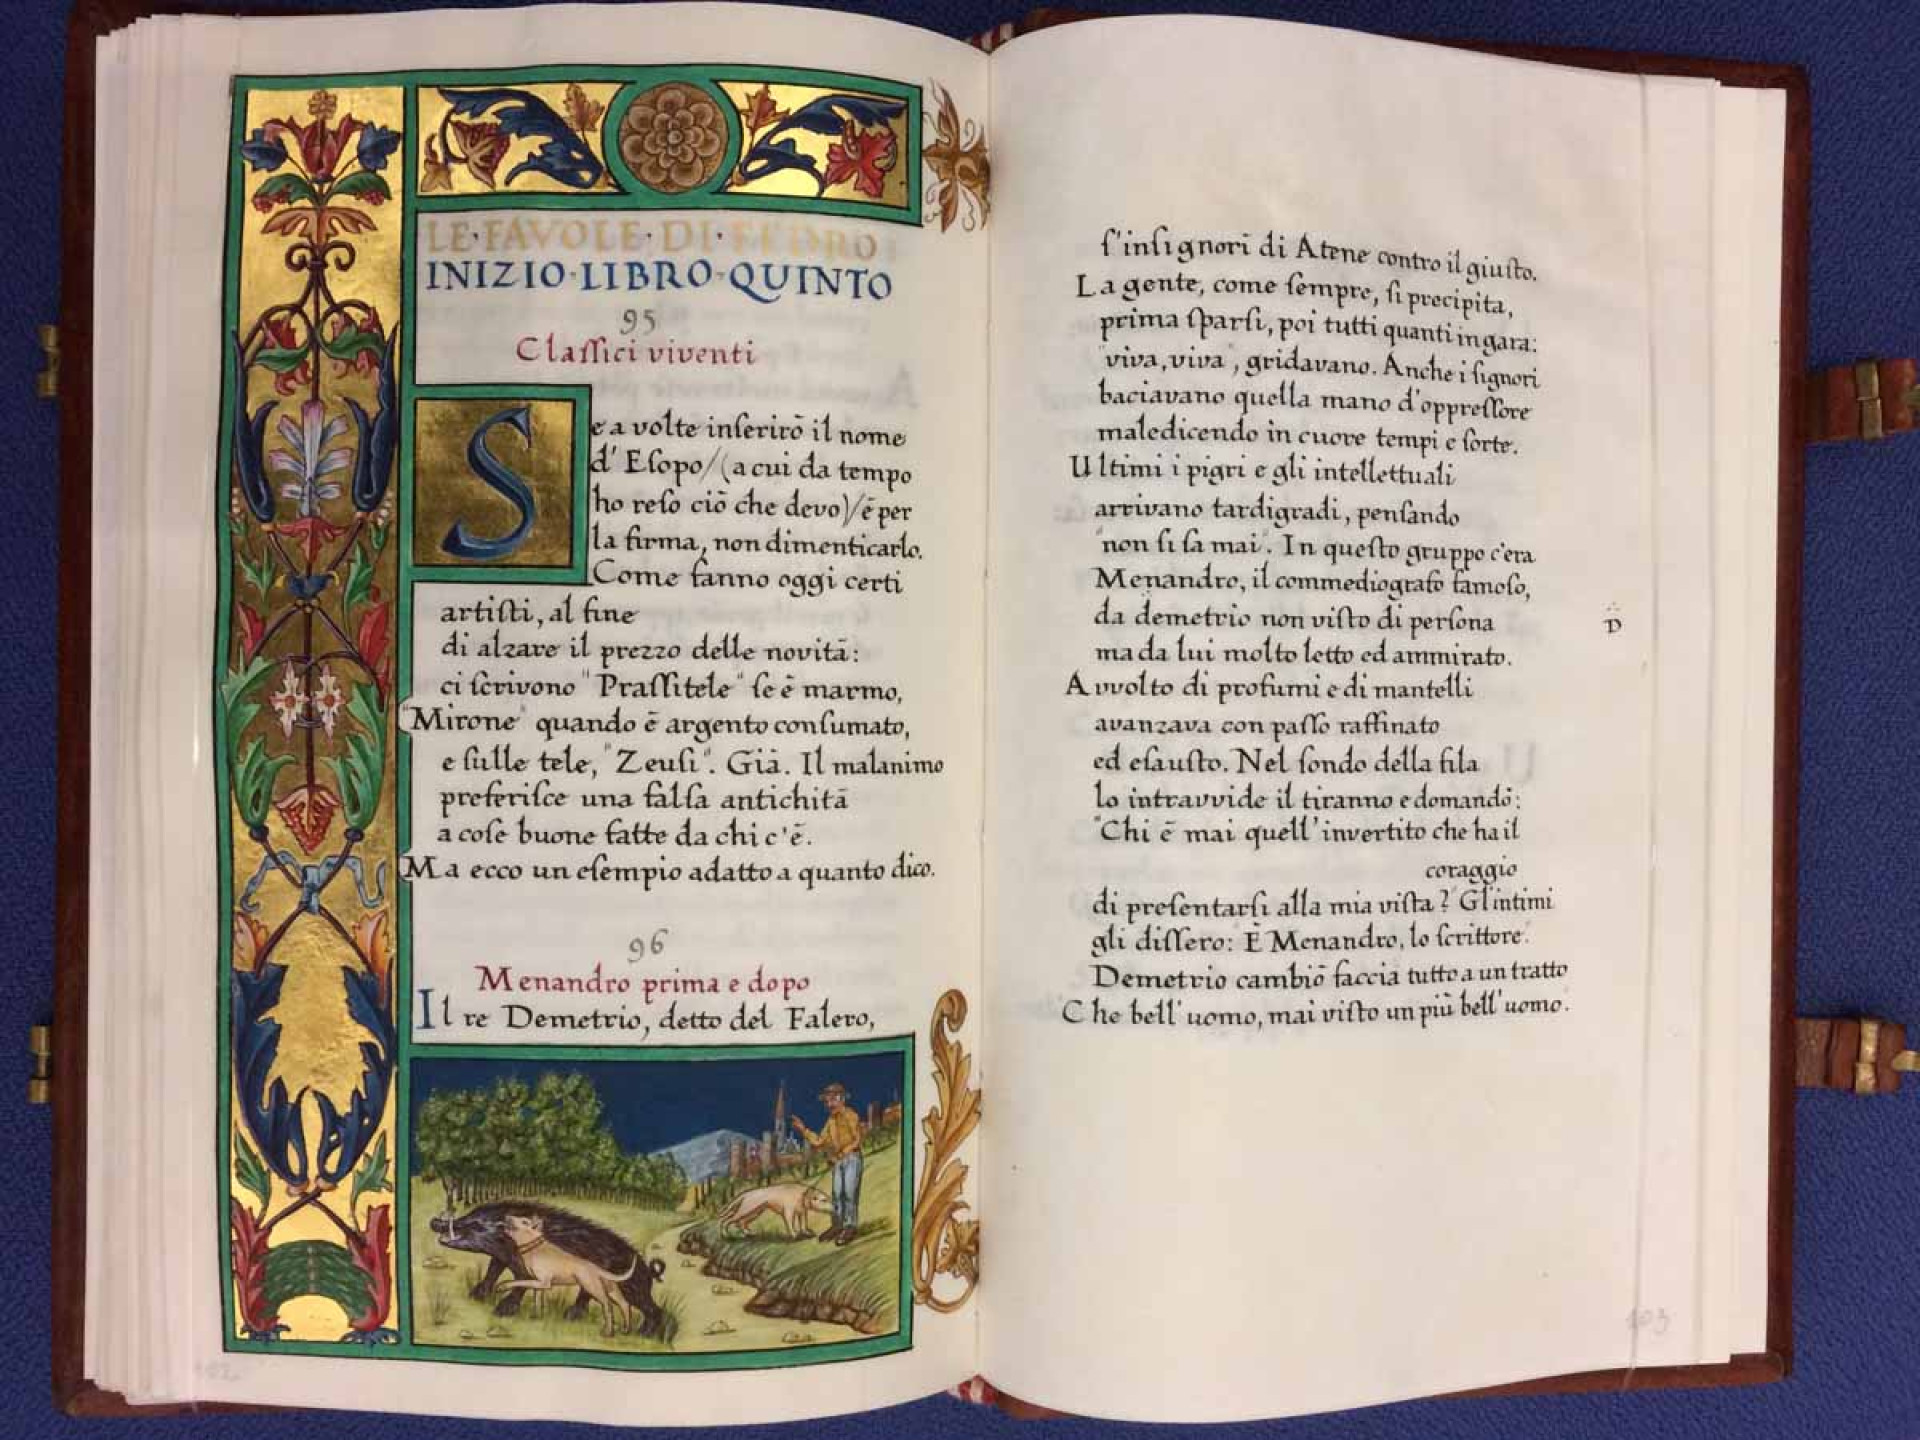 LE·FAVOLE·DI·FEDRO
INIZIO·LIBRO·QUINTO
95
Claſſici viventi
Se a volte inſerirō il nome
d' Eſopo/(a cui da tempo
ho reſo ciō che devo)/ē per
la firma, non dimenticarlo.
Come fanno oggi certi
artiſti, al fine
di alzare il prezzo delle novitā:
ci ſcrivono "Praſſitele" ſe ē marmo,
"Mirone" quando ē argento conſumato,
e ſulle tele, "Zeuſi". Giā. Il malanimo
preferiſce una falſa antichitā
a coſe buone fatte da chi c'ē.
Ma ecco un eſempio adatto a quanto dico.
96
Menandro prima e dopo
Il re Demetrio, detto del Falero,
ſ'inſignorī di Atene contro il giuſto.
La gente, come ſempre, ſi precipita,
prima ſparſi, poi tutti quanti in gara:
"viva, viva", gridavano. Anche i ſignori
baciavano quella mano d'oppreſſore
maledicendo in cuore tempi e ſorte.
Ultimi i pigri e gli intellettuali
arrivano tardigradi, penſando
"non ſi ſa mai". In queſto gruppo c'era
Menandro, il commediografo famoſo,
da demetrio non viſto di perſona
D
ma da lui molto letto ed ammirato.
Avvolto di profumi e di mantelli
avanzava con paſſo raffinato
ed eſauſto. Nel fondo della fila
lo intravvide il tiranno e domandō:
"Chi ē mai quell'invertito che ha il
coraggio
di preſentarſi alla mia viſta?" Gl'intimi
gli diſſero: "Ē Menandro, lo ſcrittore".
Demetrio cambiō faccia tutto a un tratto
"Che bell'uomo, mai viſto un piū bell'uomo."
102
103